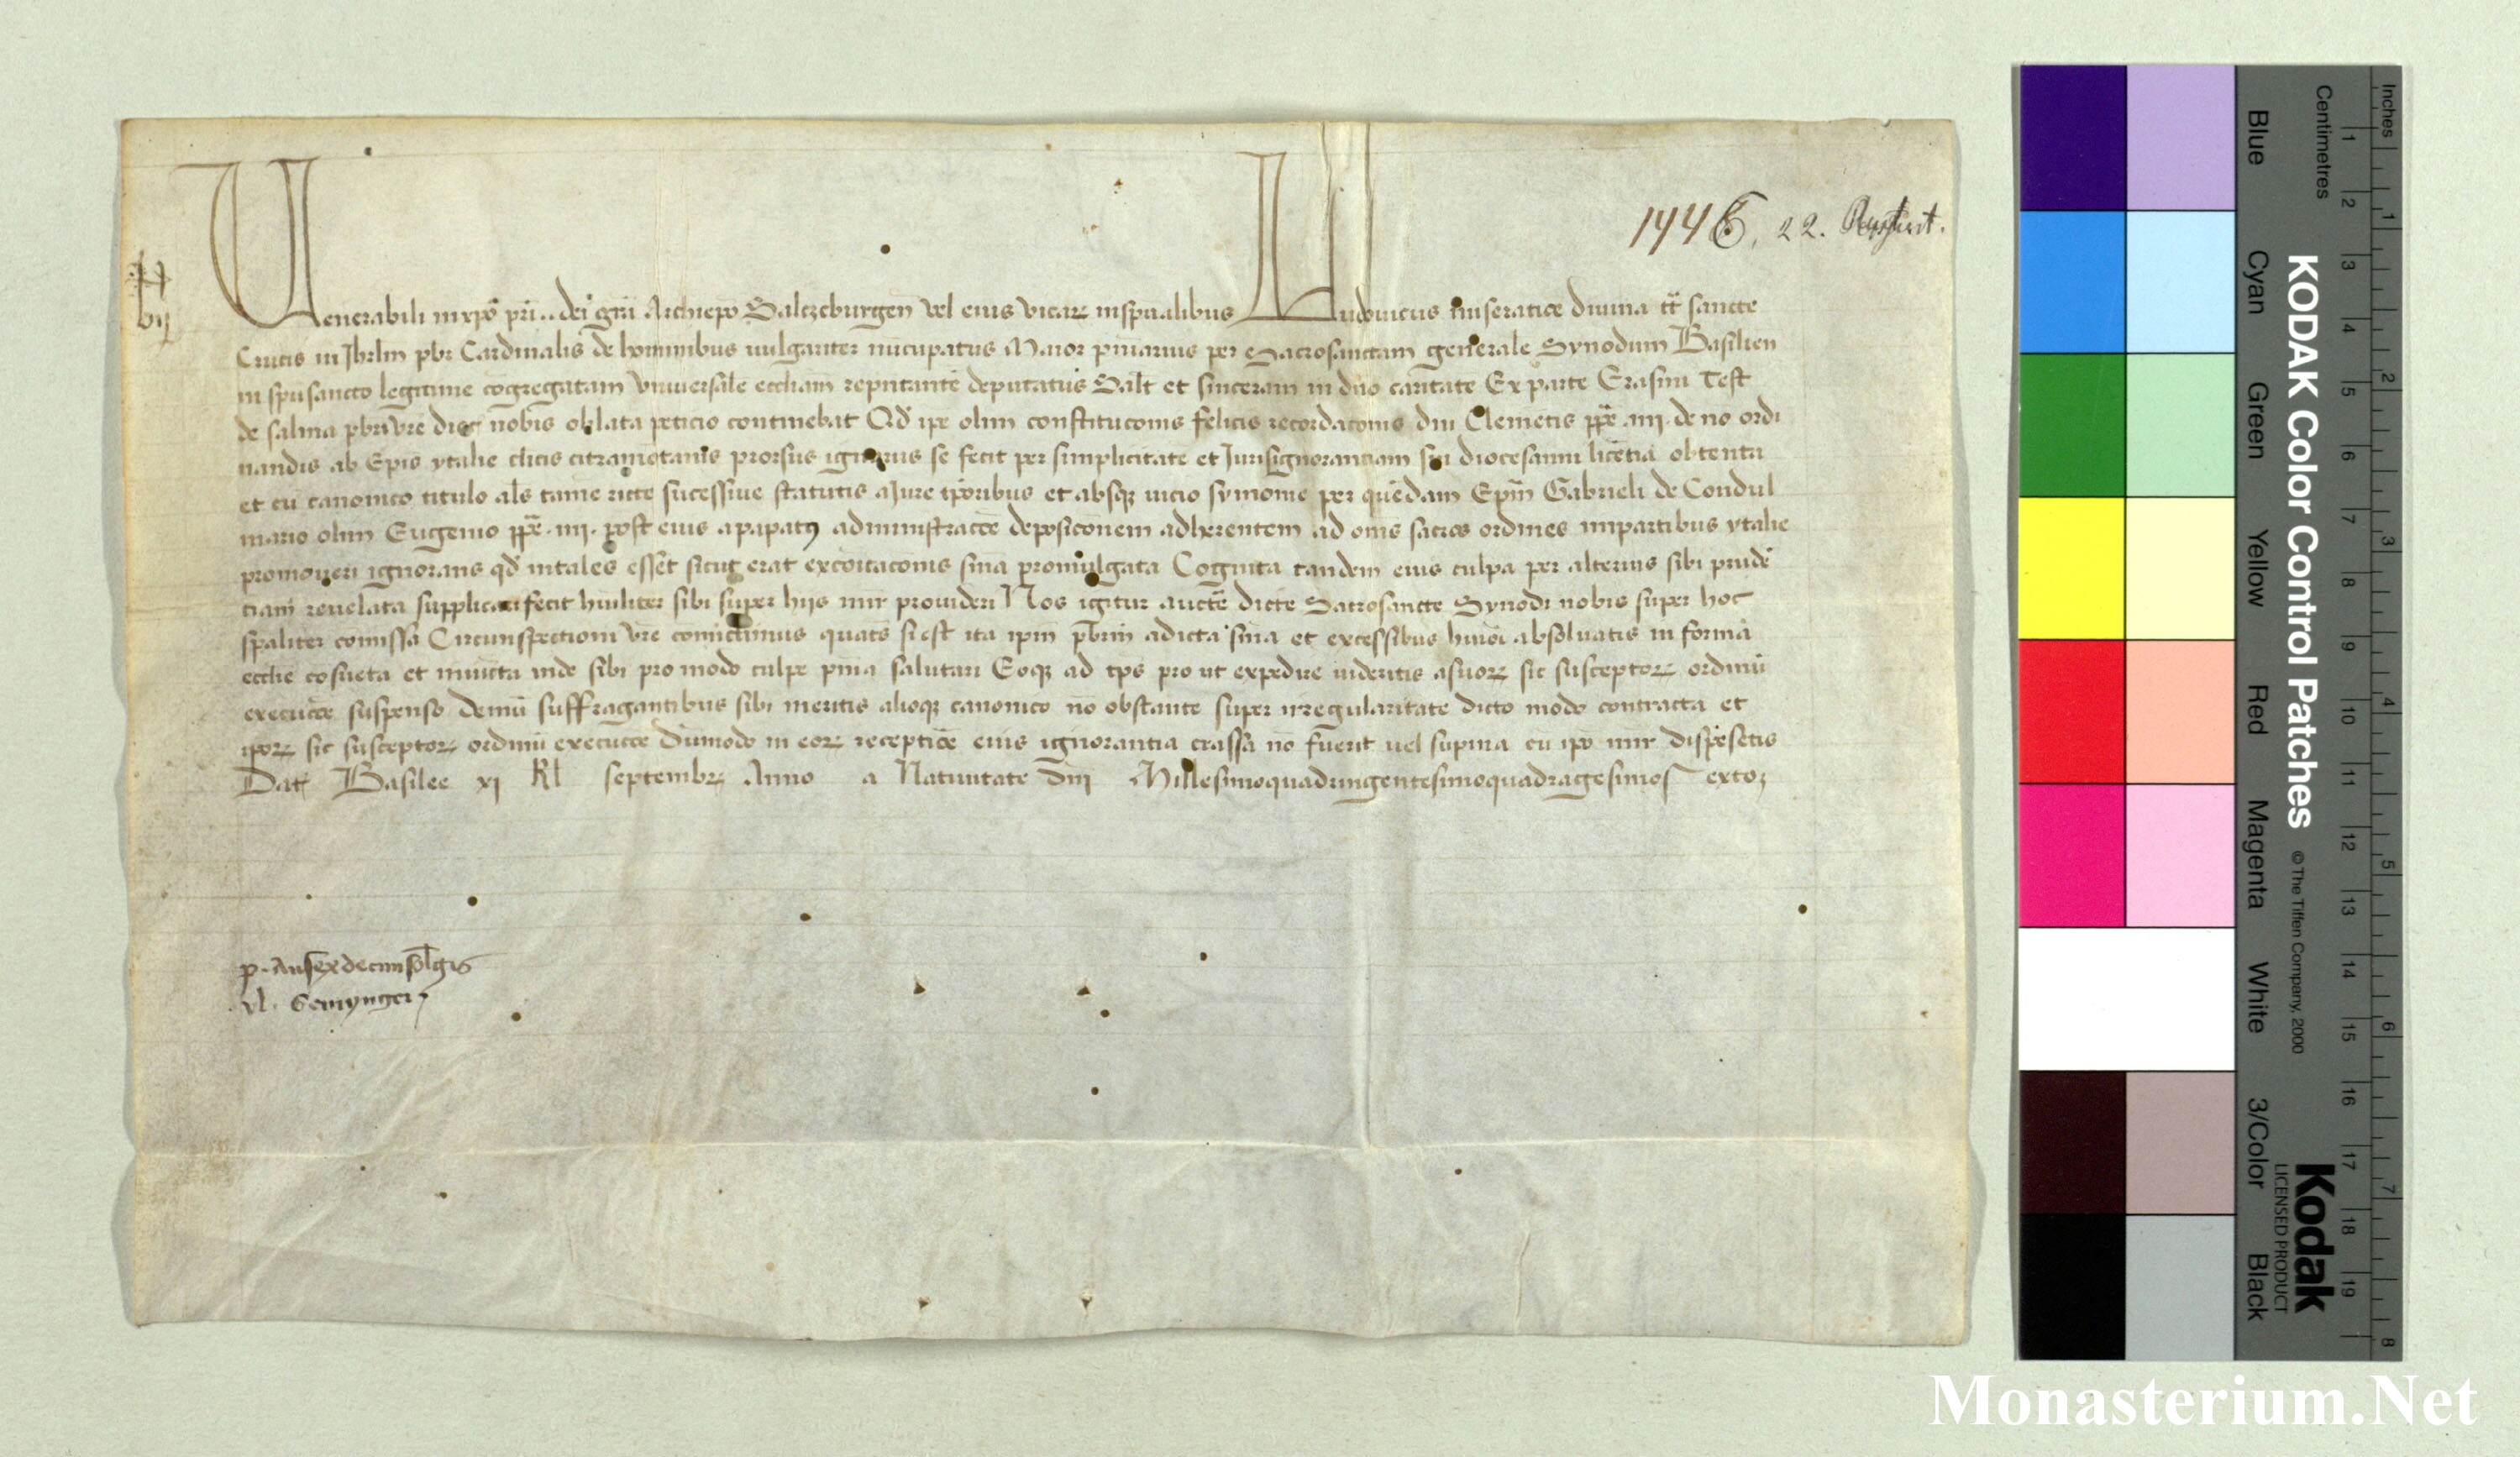 1446. 22. August.
Venerabili in xpo pri .. dei gra Archiepo Salczeburgen vel eius vicar in spualibus Ludouicus miseratione diuina tt sancte
Crucis in Jhrlm pbr Cardinalis de hominibus uulgariter nuncupatus Maior pniarius per Sacrosanctam generale Synodum Basilien
in spusancto legitime cogregatam vniuersale eccliam reputante deputatus Salt et sinceram in dno caritate Ex parte Erasmi Test
de salina pbri vre dioc nobis oblata peticio continebat Qd ipe olim constitucionis felicis recordaconis dni Clemetis ppe .iiij. de no ordi
nandis ab Epis ytalie clicis citramotanis prorsus ignarus se fecit per simplicitate et Juris ignorantiam sui diocesanni licetia obtenta
et cu canonico titulo als tame rite sucessiue statutis a Jure tporibus et absq vicio symonie per quedam Epm Gabrieli de Condul
mario olim Eugenio ppe .iiij. post eius a papatus administracoe deposiconem adherentem ad omes sacros ordines in partibus ytalie
promoueri ignorans qd in tales esset sicut erat excoicaconis sina promulgata Cognita tandem eius culpa per alterius sibi prude
tiam reuelata supplicari fecit huiliter sibi super hijs mir prouideri Nos igitur aucte dicte Sacrosancte Synodi nobis super hoc
spaliter comissa Circunspectioni vre comictimus quats si est ita ipm pbrm a dicta sina et excessibus huioi absoluatis in forma
ecclie cosueta et iniucta inde sibi pro modo culpe pnia salutari Eoq ad tps pro ut expedire uideritis a suor sic susceptor ordinu
execucoe suspenso demu suffragantibus sibi meritis alioq canonico no obstante super irregularitate dicto modo contracta et
ipor sic susceptor ordinu execucoe dumodo in eor recepticoe eius ignorantia crassa no fuerit uel supina cu ipo mir dispesetis
Dat Basilee xj kl septembr Anno a Natiuitate dni Millesimoquadringentesimoquadragesimosexto
Inches
Centimetres
1 2 3 4 5 6 7 8 9 10 11 12 13 14 15 16 17 18 19
1 2 3 4 5 6 7 8
KODAK Color Control Patches © The Tiffen Company, 2000
Kodak
LICENSED PRODUCT
Blue Cyan Green Yellow Red Magenta White 3/Color Black
Monasterium.Net